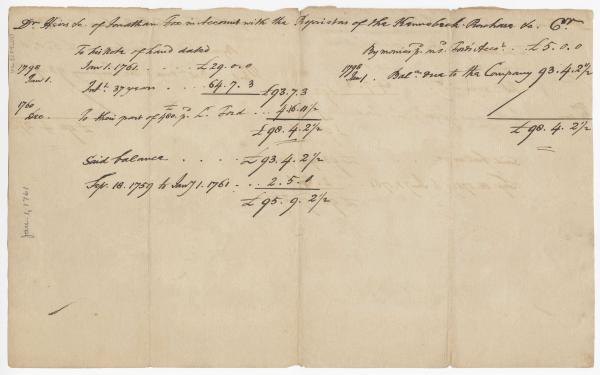 Dr. Heirs &c. of Jonathan Fox in Account with the Proprietors of the Kennebeck Purchase &c. Cr.
To his Note of hand dated
1798 Jan 1. 1761. . . . . £29.0.0
Jan 1. Intt. 37 years . . . 64.7.3
£93.7.3
1760
Dec. To their part of 480. p. L. Ford . . 4.16.11½
£98.4.2½
By monies p. Acct. . £5.0.0
1798
Jan 1. Balce. due to the Company 93.4.2½
£98.4.2½
Said balance . . . . £93.4.2½
Sep. 18. 1759 to Jany 1. 1761 . . . 2.5.0
£95.9.2½
Jan 1, 1761